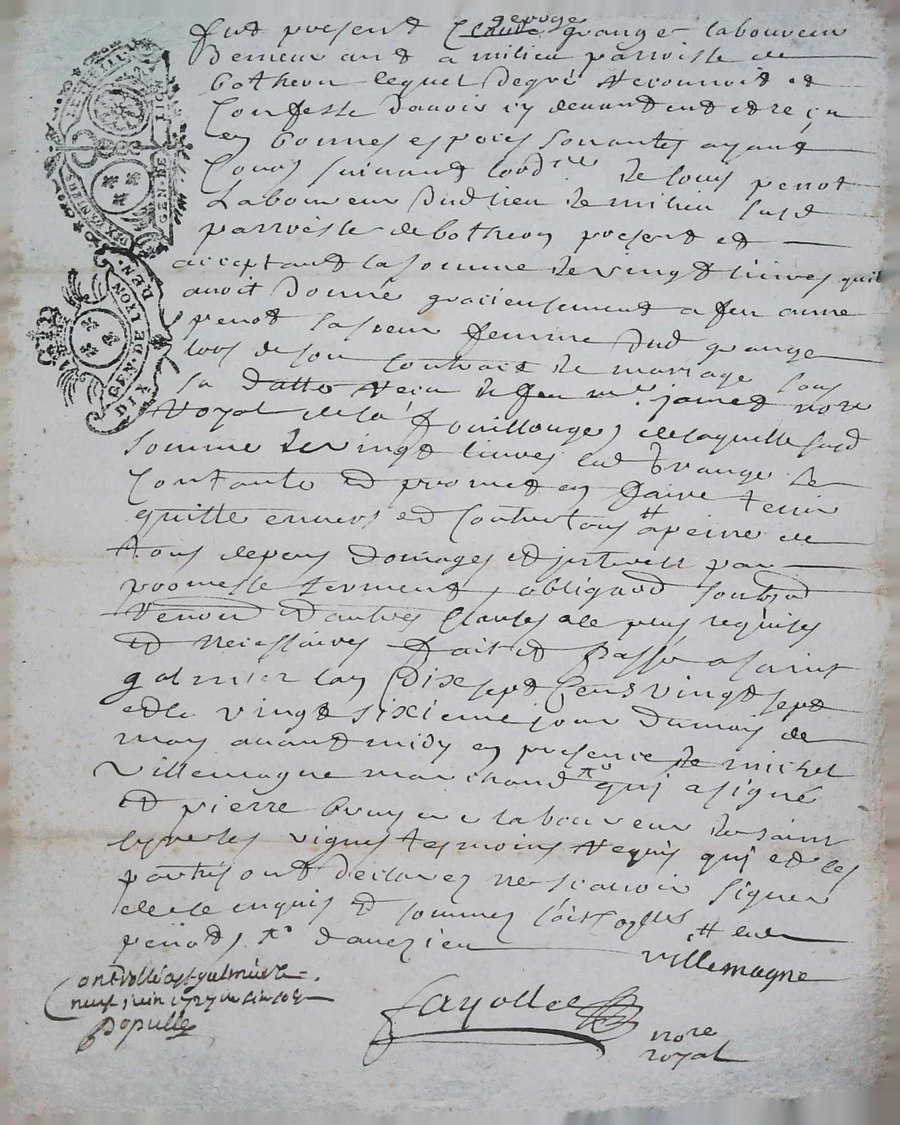 GEN. DE LYON
DIX DEN
george
fut present Claude grange laboureur
Demeurant a milieu parroisse de
botheon lequel de gré Reconnoit et
Confesse davoir cy devant eut et reçu
en bonnes especes sonantes ayant
Cours suivant lord.re de louis penot
Laboureur dud lieu de milieu susd
parroisse de botheon present et
acceptant la somme de vingt livres quil
avoit Donné gracieusement a feu anne
penot sa sœur femme dud grange
lors de son Contract de mariage sous
sa datte Receu de feu m.e jamet no.re
Royal de la fouillouze, de laquelle susd
somme de vingt livres led Grange se
Contante et promet en faire tenir
quitte envers et Contre tous a peine de
tous depens Domages et interest par
promesse serment, obligaod soubzod
Renonod et autres Clauses de plus requises
et necessaires fait et Passé a saint
galmier lan Dix sept Cens vingt sept
et le vingt sixieme jour du mois de
may avant midy en presence de michel
villemagne marchand qui a signé
et pierre laboureur de saint
Cyre les vignes tesmoins Requis qui et les
partis ont declarez ne scavoir signer
de ce enquis et sommez
penod
villemagne
Controllé a st galmier le
neuf juin 1727
Populle
fayolle
no.re
royal